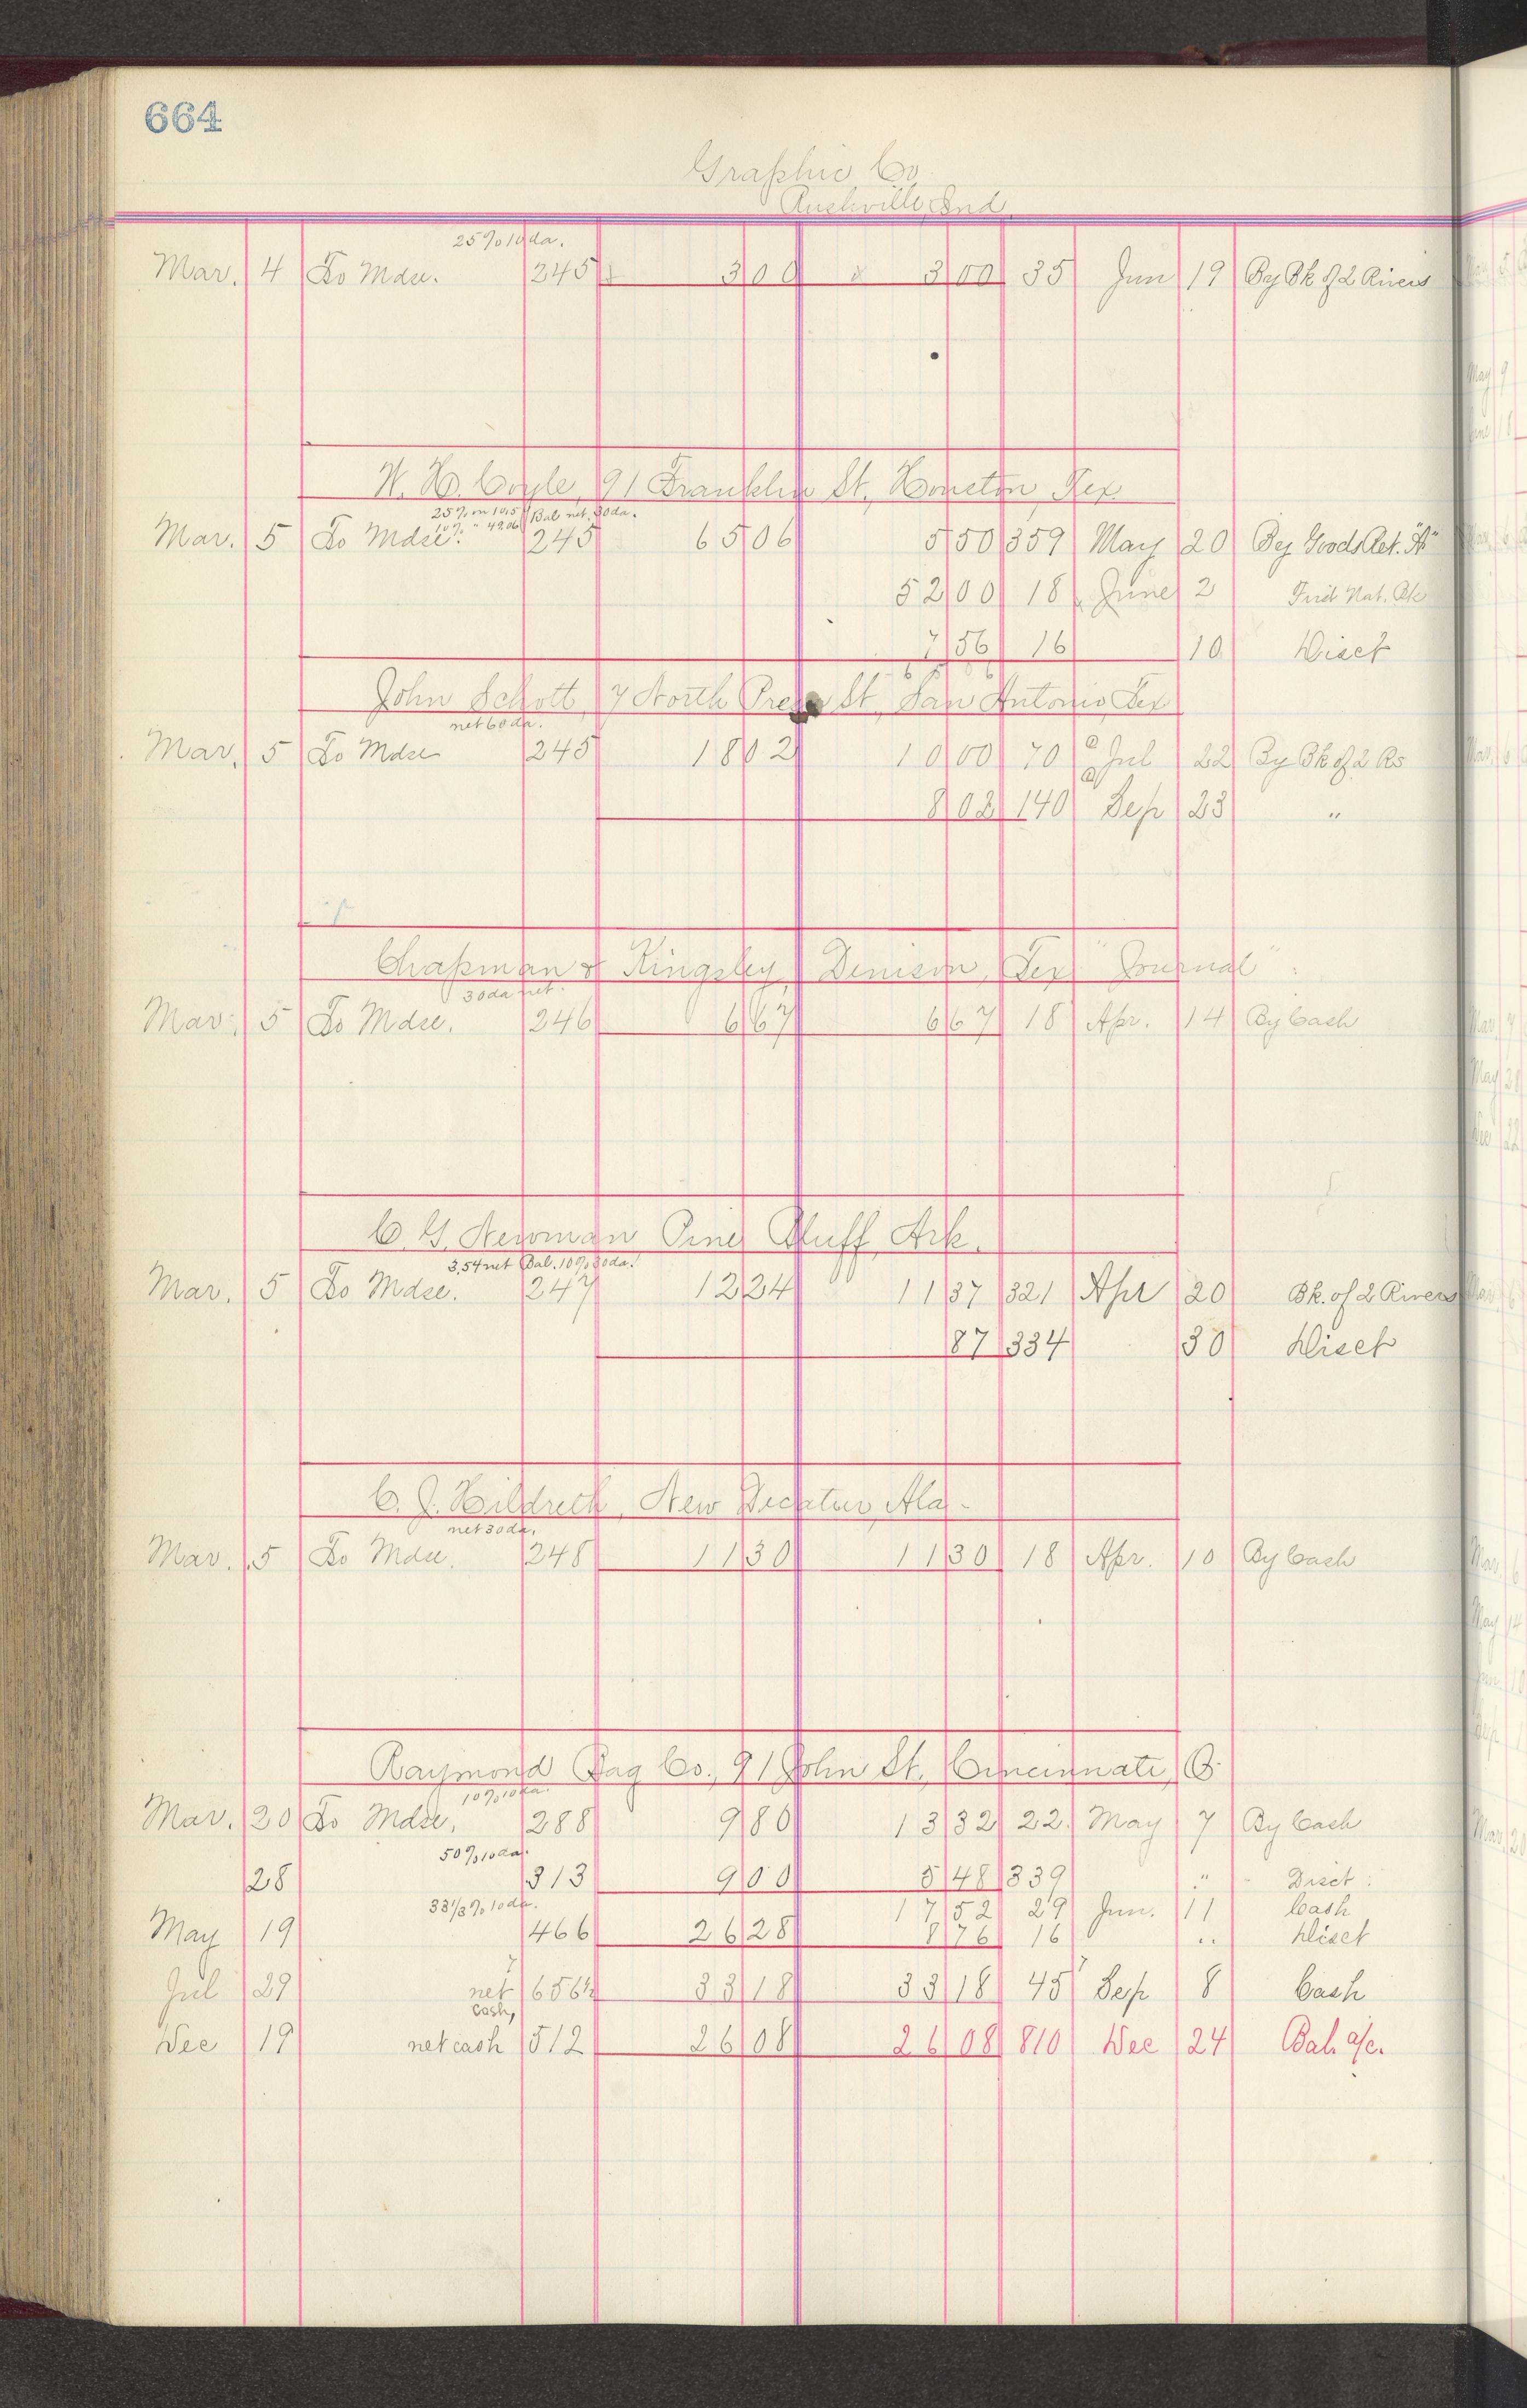 664
Graphic Co.
Rushville, Ind.
25% 10 da.
Mar. 4 To Mdse. 245 x 3 00 x 3 00 35 Jun 19 By Bk of 2 Rivers
W. H. Coyle, 91 Franklin St., Houston, Tex.
25% on 10.5 Bal net. 30 da.
10% " 49.06
Mar. 5 To Mdse. 245 65 06 5 50 359 May 20 By Goods Ret. "A"
52 00 18 June 2 First Nat. Bk
7 56 16 10 Disct
6 5 0 6
John Schott, 7 North Presa St., San Antonio, Tex
net 60 da.
Mar. 5 To Mdse 245 18 02 10 00 70 @ Jul 22 By Bk of 2 Rs
8 02 140 @ Sep 23 "
Chapman & Kingsley, Denison, Tex "Journal"
30 da net.
Mar. 5 To Mdse. 246 6 67 6 67 18 Apr. 14 By Cash
C. G. Newman Pine Bluff, Ark.
3.54 net Bal. 10% 30 da.
Mar. 5 To Mdse. 247 12 24 11 37 321 Apr 20 Bk. of 2 Rivers
87 334 30 Disct
C. J. Hildreth, New Decatur, Ala-
net 30 da.
Mar. 5 To Mdse. 248 11 30 11 30 18 Apr. 10 By Cash
Raymond Bag Co., 91 John St., Cincinnati, O.
10% 10 da.
Mar. 20 To Mdse. 288 9 80 13 32 22 May 7 By Cash
50% 10 da.
28 313 9 00 5 48 339 " Disct.
33 1/3% 10 da. 17 52 29 Jun. 11 Cash
May 19 466 26 28 8 76 16 " Disct
Jul 29 net cash, 656½ 33 18 33 18 45 Sep 8 Cash
Dec 19 net cash 512 26 08 26 08 810 Dec 24 Bal. a/c.